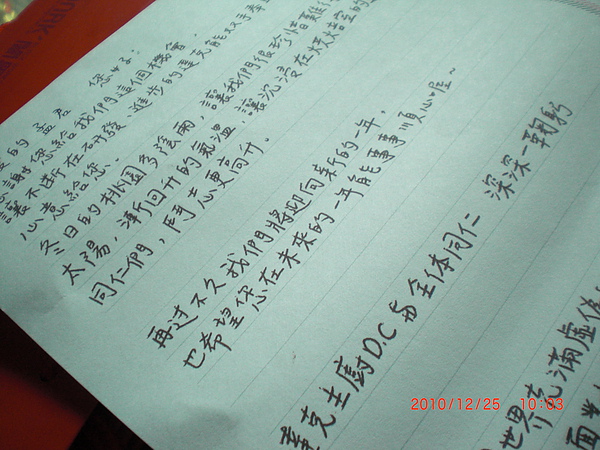 的孟君 您好:
謝謝您給我們這個機會,
讓不斷在研發、進步的達克能双手奉
心意給您。
冬日的桃園多陰雨,讓我們很珍惜難得
太陽,漸回升的氣溫,讓沉浸在烘焙室的
同仁們,鬥志更高升。
再過不久我們將迎向新的一年,
也希望您在未來的一年能事事順心喔~
達克主廚D.C與全体同仁 深深一鞠躬
世界充滿虛偽
面對
2010/12/25 10:03